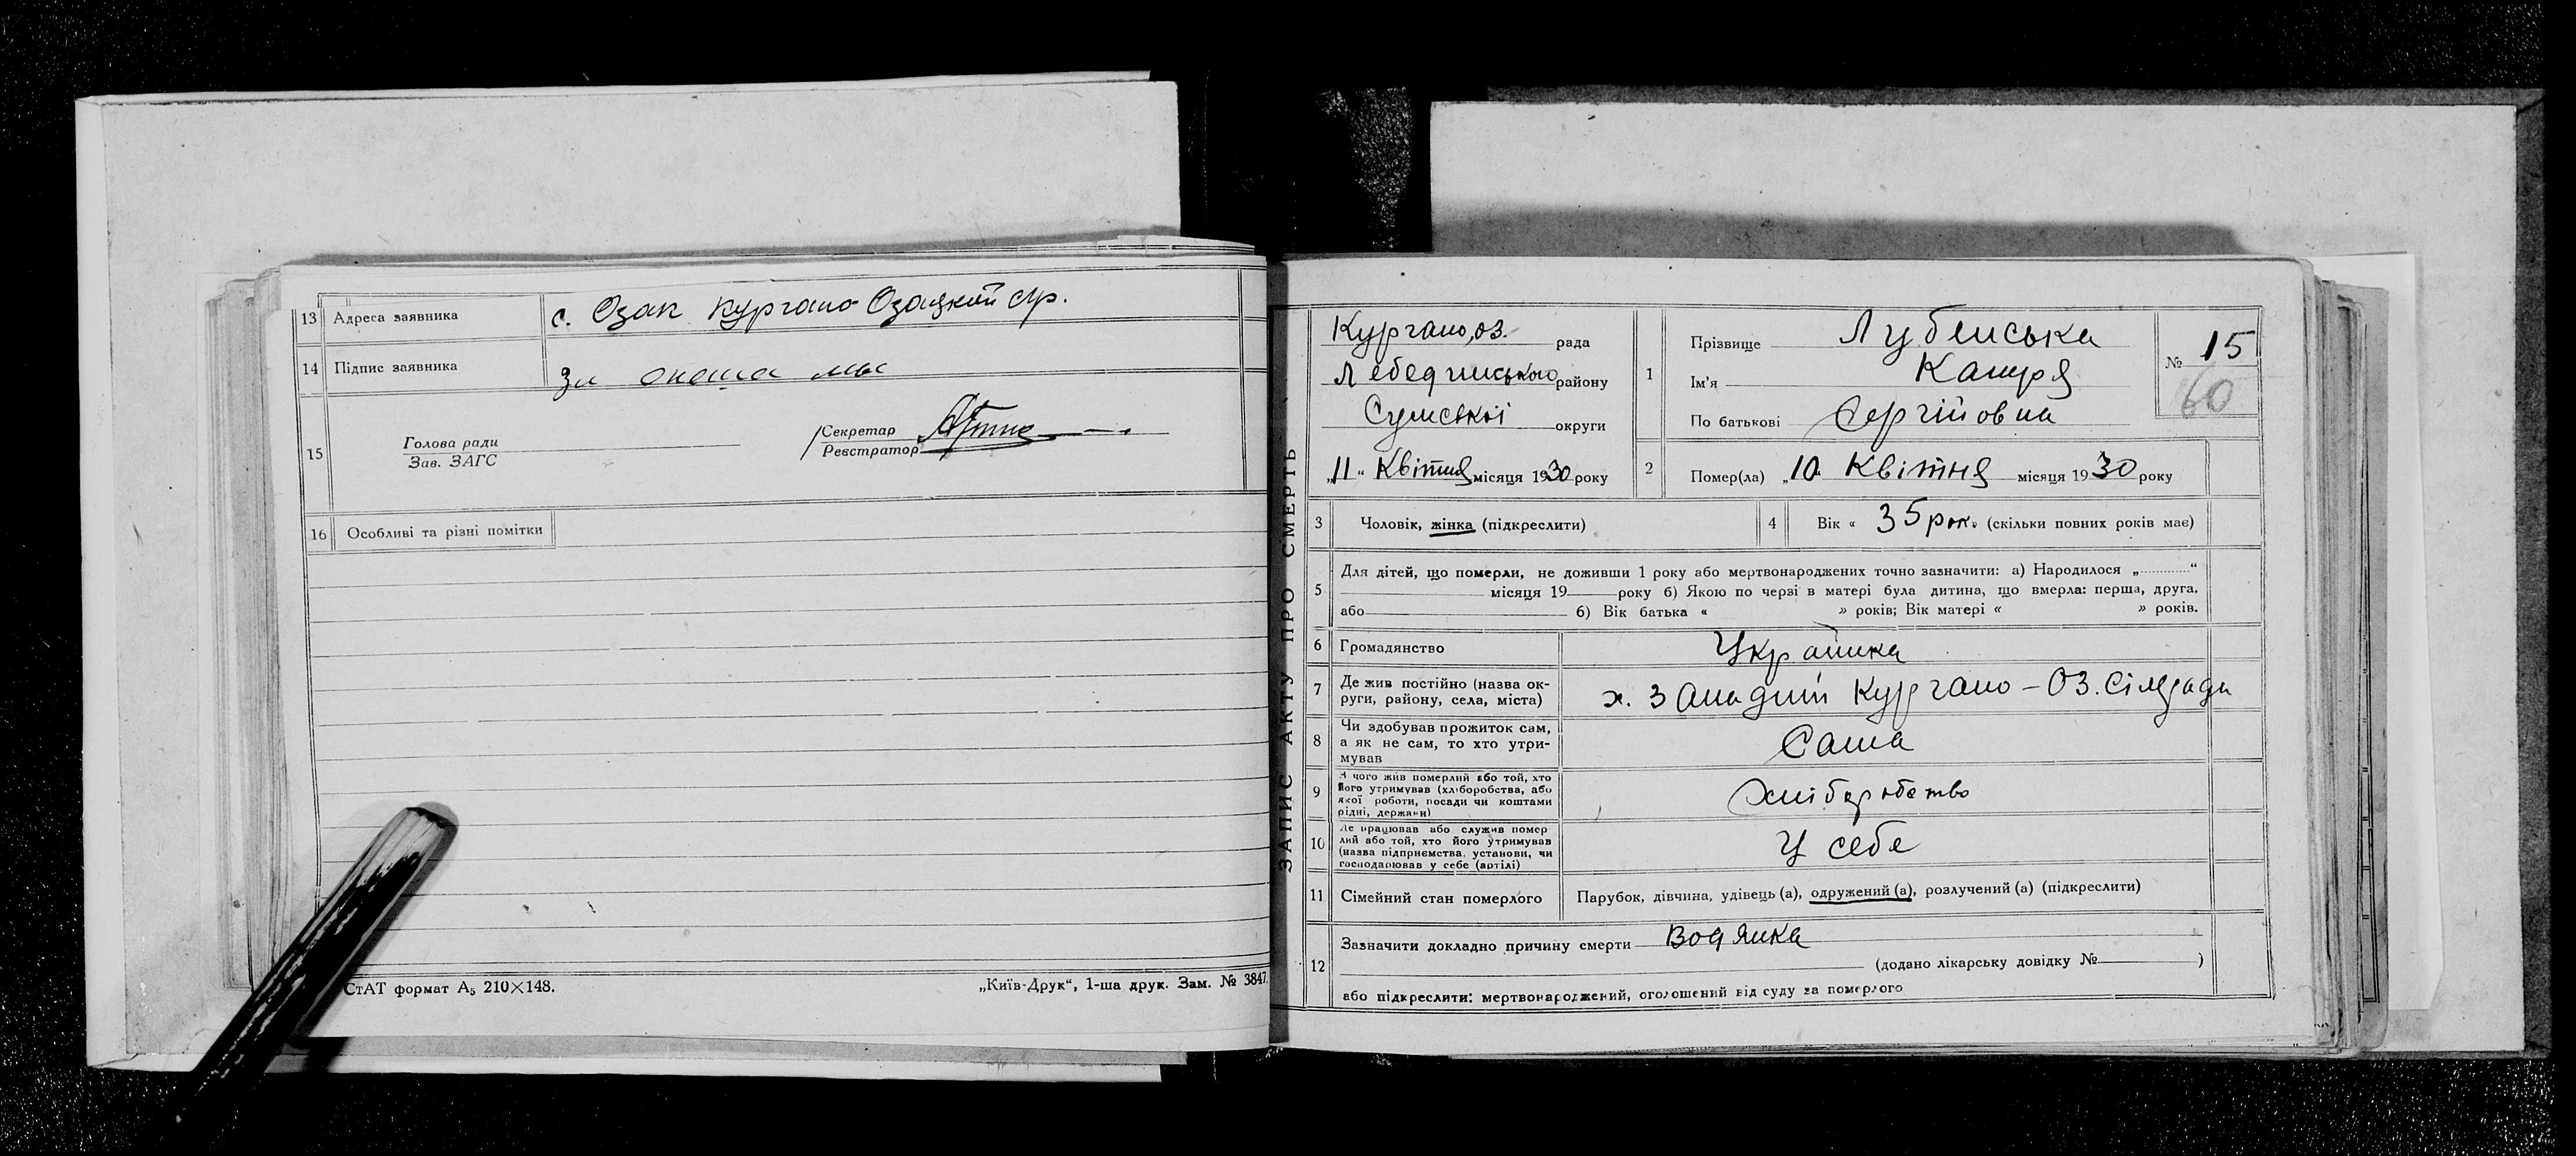 13 Адреса заявника с. Озак Кургано Озацкий ср.
14 Підпис заявника За
15 Голова ради
Зав. ЗАГС
Секретар
Реєстратор
16 Особливі та різні помітки
СтАТ формат А5 210×148.
„Київ-Друк“, 1-ша друк. Зам. № 3847.
ЗАПИС АКТУ ПРО СМЕРТЬ
Кургано,оз. рада
Лебединського району
Сумської округи
„11“ Квітня місяця 1930 року
1 Прізвище Лубенська
Ім'я
По батькові Сергійовна
№ 15
60
2 Помер(ла) „10 Квітня місяця 1930 року
3 Чоловік, жінка (підкреслити)
4 Вік « 35 рок» (скільки повних років має)
5 Для дітей, що померли, не доживши 1 року або мертвонароджених точно зазначити: а) Народилося „ “
місяця 19 року б) Якою по черзі в матері була дитина, що вмерла: перша, друга,
або б) Вік батька « » років; Вік матері « » років.
6 Громадянство Українка
7 Де жив постійно (назва ок-
руги, району, села, міста)
х. Западний Кургано-Оз. сілради
8 Чи здобував прожиток сам,
а як не сам, то хто утри-
мував
Сама
9 З чого жив померлий або той, хто
його утримував (хліборобства, або
якої роботи, посади чи коштами
рідні, держави)
Хліборобство
10 Де працював або служив помер
лий або той, хто його утримував
(назва підприємства, установи, чи
господарював у себе (артілі)
У себе
11 Сімейний стан померлого Парубок, дівчина, удівець (а), одружений (а), розлучений (а) (підкреслити)
12 Зазначити докладно причину смерти Водянка
(додано лікарську довідку № )
або підкреслити: мертвонароджений, оголошений від суду за померлого